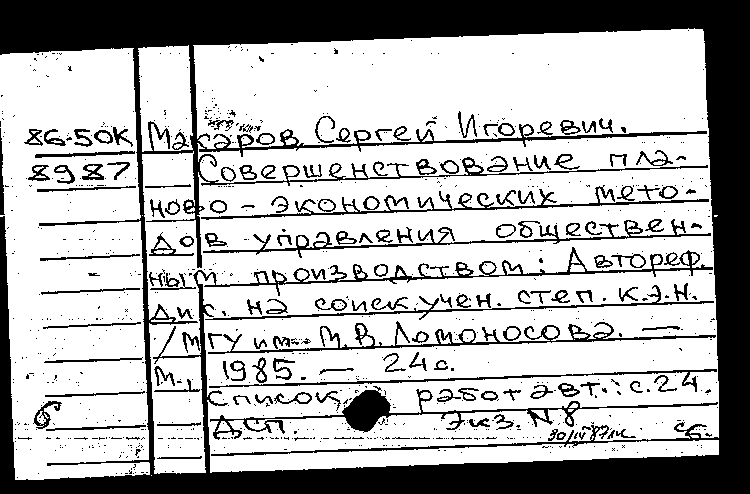 86-50К Макаров, Сергей Игоревич.
8987 Совершенствование пла-
ново-экономических мето-
дов управления обществен-
ным производством: Автореф.
дис. на соиск. учен. степ. к.э.н.
/МГУ им. М.В. Ломоносова. —
М., 1985. — 24с.
Список работ авт.: с.24.
б ДСП. Экз. N 8